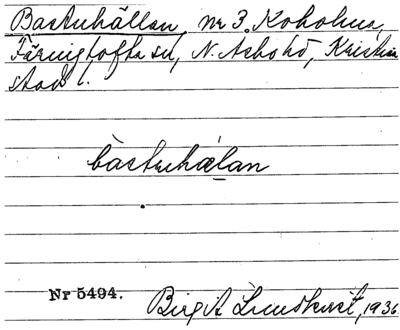 Bastuhällan, nr 3. Koholma,
Färingtofta sn, N. Åsbo hd, Kristian
stads l.
bàstuhælan
Nr 5494.
Birgit Lundkvist, 1936